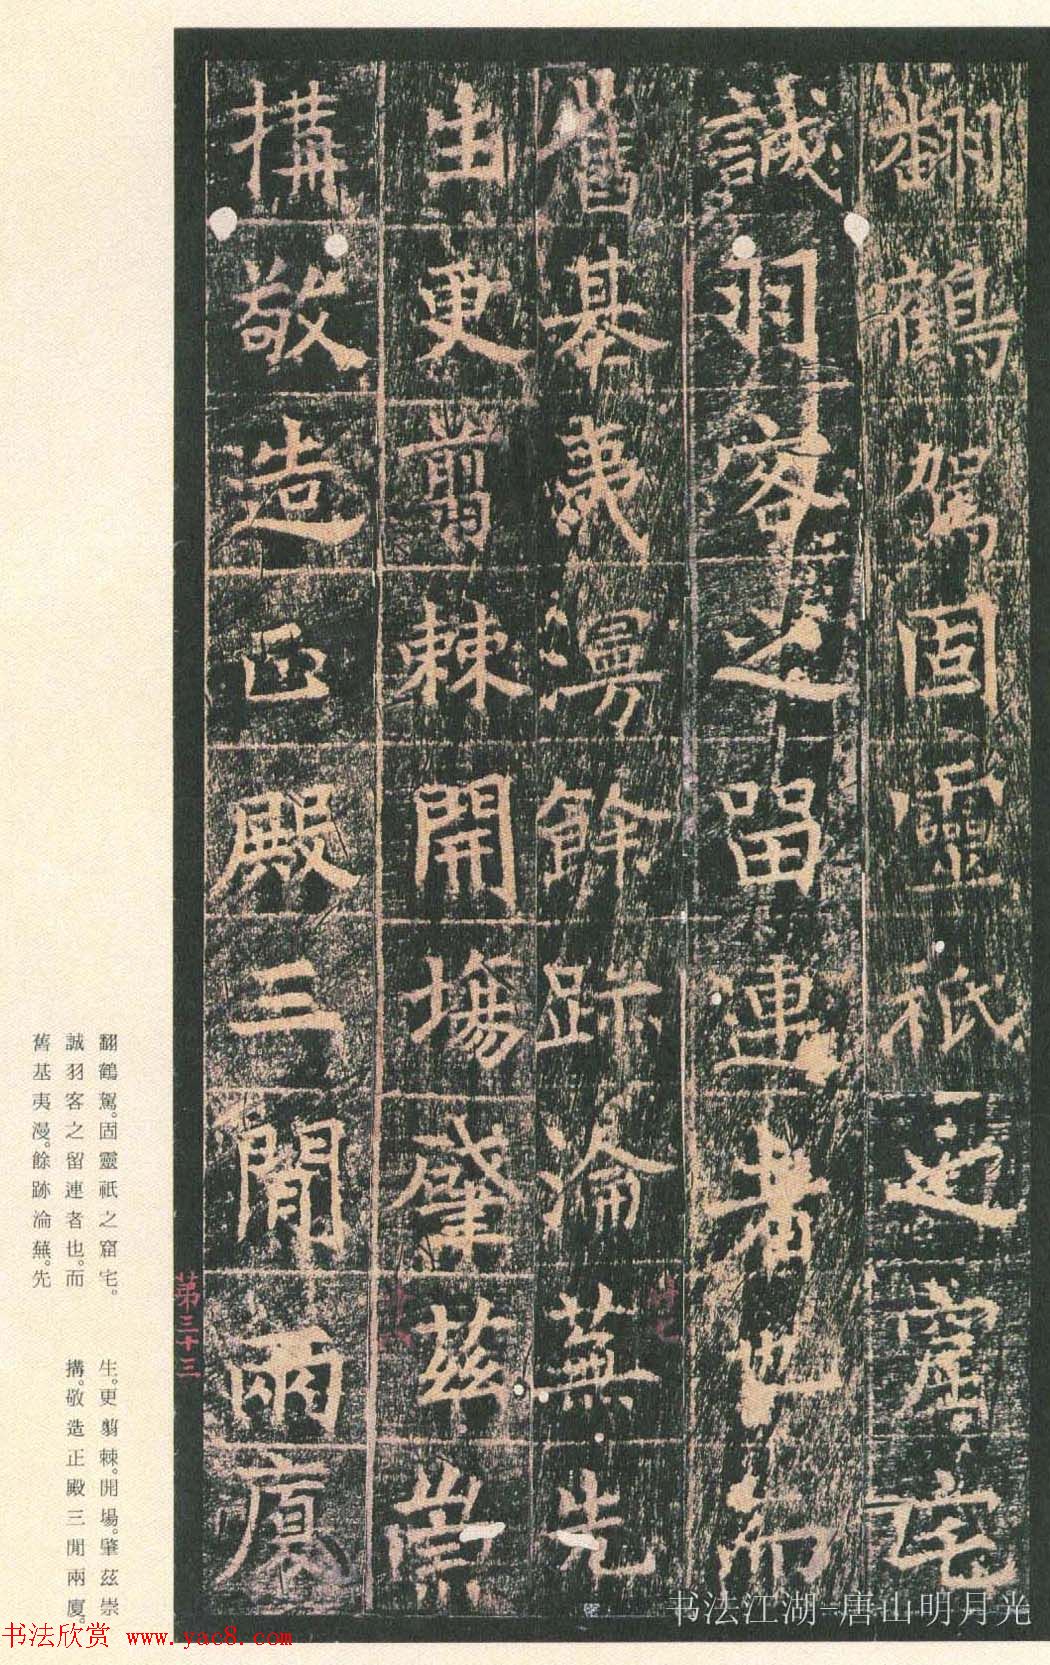 翻鶴駕固靈祇之窟宅
誠羽客之留連者也而
舊基夷漫餘跡淪蕪先
生更翦棘開場肇茲崇
搆敬造正殿三閒兩廈
廿七
第三十三
翻鶴駕。固靈祇之窟宅。
誠羽客之留連者也。而
舊基夷漫。餘跡淪蕪。先
生。更翦棘。開場。肇茲崇
搆。敬造正殿三閒兩廈。
书法江湖-唐山明月光
书法欣赏 www.yac8.com